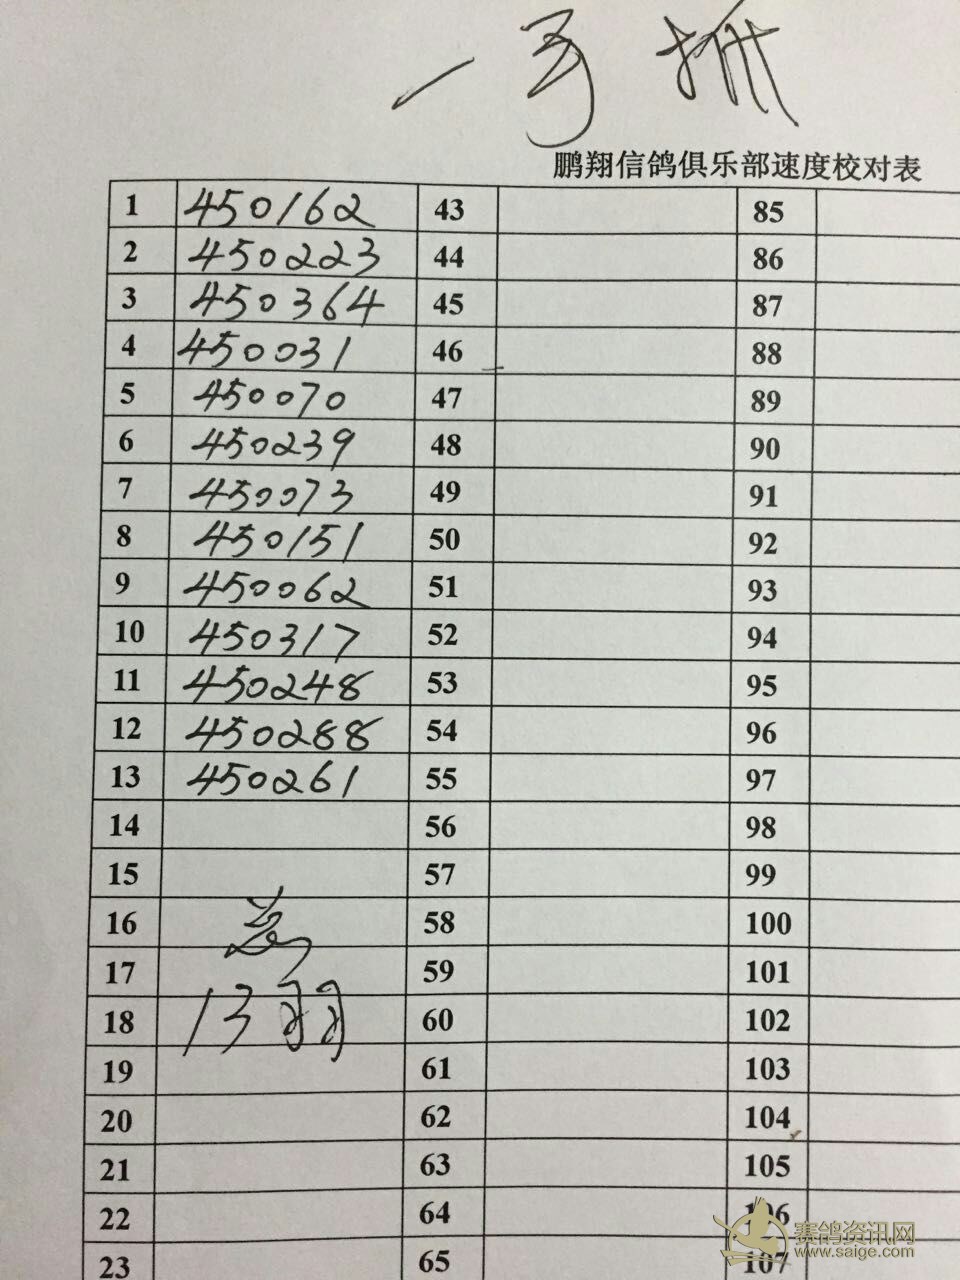 一号
鹏翔信鸽俱乐部速度校对表
1 450162 43 85
2 450223 44 86
3 450364 45 87
4 450031 46 88
5 450070 47 89
6 450239 48 90
7 450073 49 91
8 450151 50 92
9 450062 51 93
10 450317 52 94
11 450248 53 95
12 450288 54 96
13 450261 55 97
14 56 98
15 57 99
16 58 100
17 59 101
18 13羽 60 102
19 61 103
20 62 104
21 63 105
22 64 106
23 65 107
赛鸽资讯网
www.saige.com